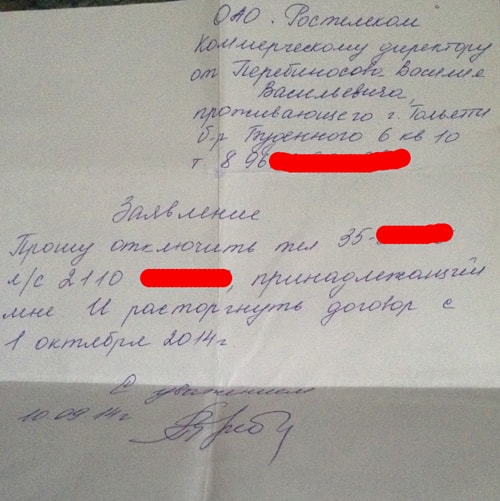 ОАО. Ростелеком
Коммерческому директору
от Перебиносова Василия
Васильевича,
проживающего г. Тольятти
б-р Буденного 6 кв 10
т 8 96
Заявление
Прошу отключить тел 35-
л/с 2110 , принадлежащий
мне И расторгнуть договор с
1 октября 2014г
С уважением
10.09.14г